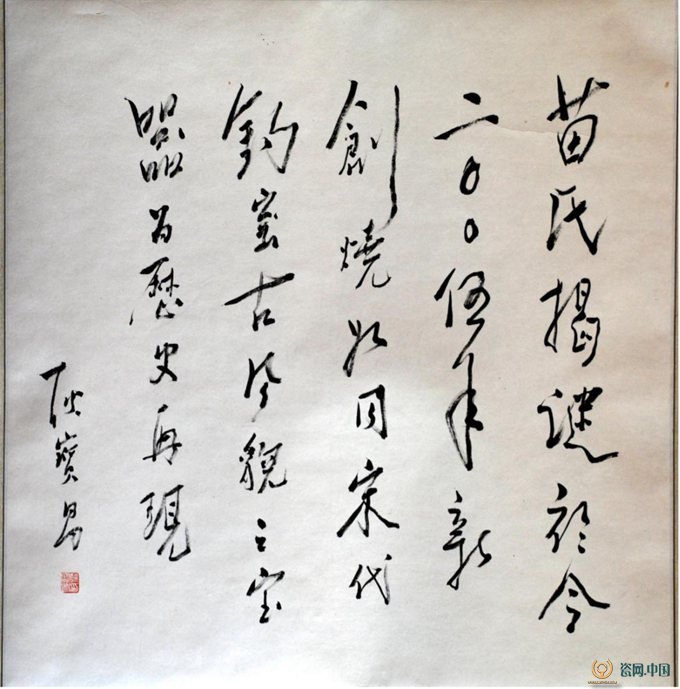 苗氏揭謎於今
二〇〇伍年新
創燒如同宋代
鈞窑古风貌之宝
器为歷史再現
耿寶昌
瓷网.中国